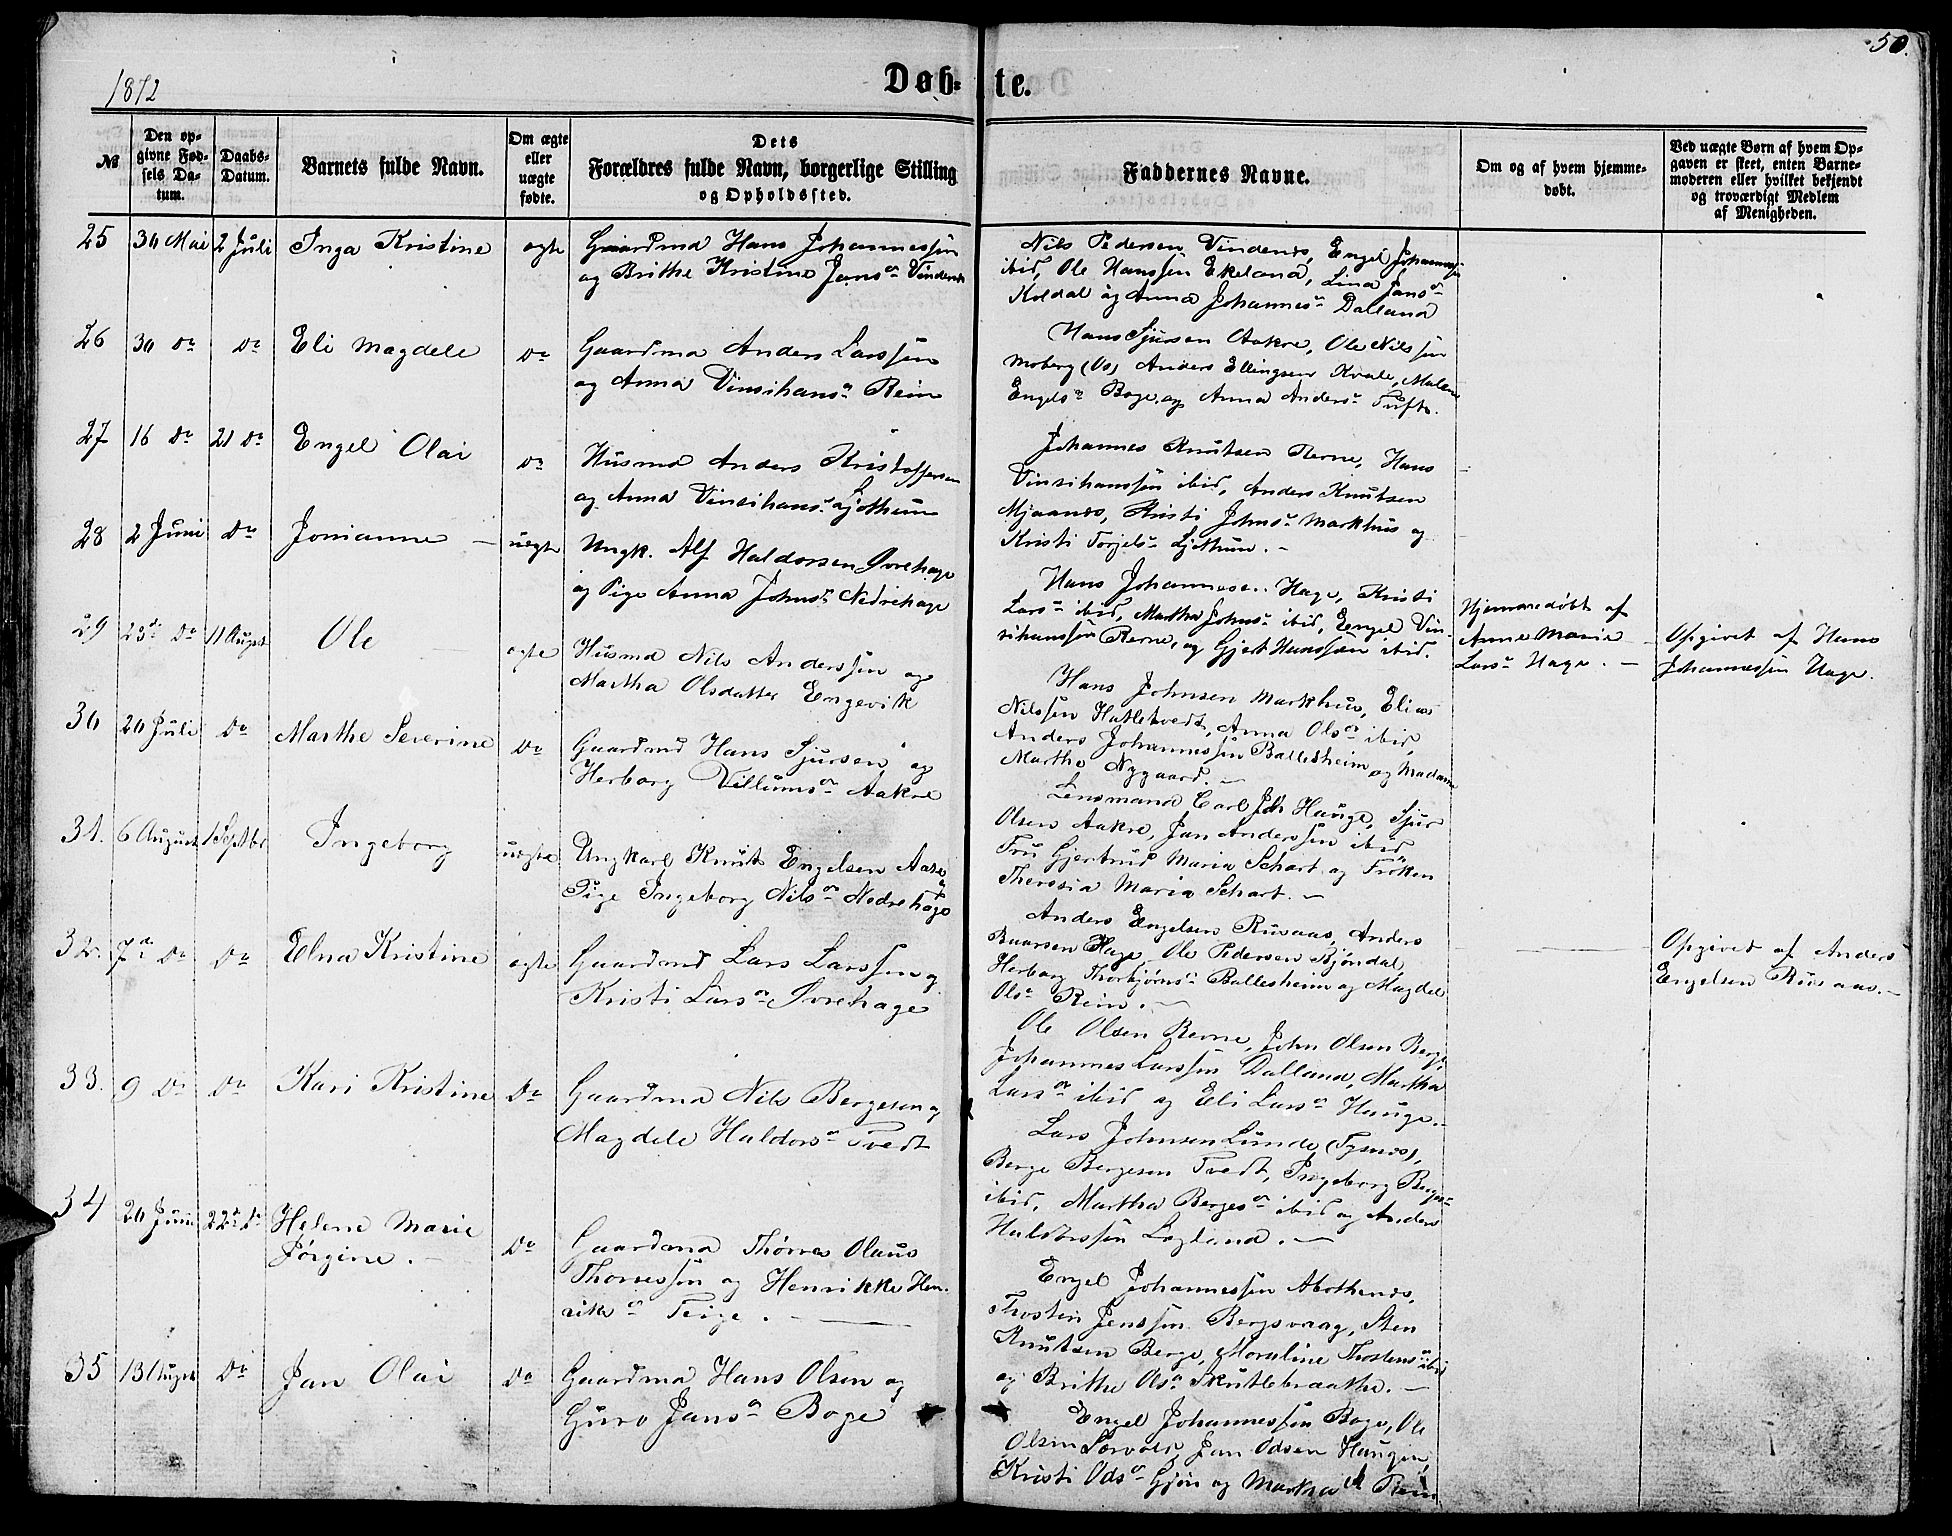 1872
Døb-
te.
50.
№
Den op-
givne Fød-
sels Da-
tum.
Daabs-
Datum.
Barnets fulde Navn.
Om ægte
eller
uægte
fødte.
Dets
Forældres fulde Navn, borgerlige Stilling
og Opholdssted.
Faddernes Navne.
Om og af hvem hjemme-
døbt.
Ved uægte Børn af hvem Op-
gaven er skeet, enten Barne-
moderen eller hvilket bekjendt
og troværdigt Medlem
af Menigheden.
25 30 Mai 2 Juli Inga Kristine ægte Gaardmd Hans Johannessen
og Brithe Kristine Jansdr Vindenes
Nils Pedersen Vindenes, Engel Johannessen
ibid, Ole Hanssen Ekeland, Lina Jansdr
Koldal og Anna Johannesdr Dalland
26 30 do do Eli Magdele do Gaardmd Anders Larssen
og Anna Vinsihansdr Rein
Hans Sjursen Aakre, Ole Nilssen
Moberg (Os) Anders Ellingsen Kvale, Malene
Engelsdr Boge og Anna Andersdr Tufte.
27 16 do 21 do Engel Olai do Husmd Anders Kristoffersen
og Anna Vinsihansdr Ljothun
Johannes Knutsen Rerne, Hans
Vinsihanssen ibid, Anders Knutsen
Mjaanes, Kristi Johnsdr Markhus og
Kristi Torjelsdr Ljothun. -
28 2 Juni do Jonianne - uægte Ungk. Alf Haldorsen Øvrehage
og Pige Anna Johnsdr Nedrehage
Hans Johannesen Hage, Kristi
Larsdr ibid, Martha Johnsdr ibid, Engel Vin-
sihanssen Rerne, og Gjert Hanssen ibid.
Hjemmedøbt af
Anne Maria
Larsdr Hage. -
Opgivet af Hans
Johannessen Hage.
29 23de do 11 August Ole ægte Husmd Nils Anderssen og
Martha Olsdatter Engevik
Hans Johnsen Markhus, Elias
Nilssen Hatletvedt, Anna Olsdr ibid,
Anders Johannessen Ballesheim og Madam
Martha Nygaard. -
30 20 Juli do Marthe Severine do Gaardmd Hans Sjursen og
Herborg Villumsdr Aakre
Lensmand Carl Joh Hauge, Sjur
Olsen Aakre, Jan Anderssen ibid
Fru Gjertrud Maria Schart og Frøken
Theresia Maria Schart. -
31. 6 August 1 Septbr Ingeborg uægte Ungkarl Knut Engelsen Aase og
Pige Ingeborg Nilsdr Nedrehage
Anders Engelsen Rusaas, Anders
Baarsen Hage, Ole Pedersen Bjøndal,
Herborg Thorbjørnsdr Ballesheim og Magdel
Olsdr Rein. -
Opgivet af Anders
Engelsen Rusaas. -
32. 7de do do Elna Kristine ægte Gaardmd Lars Larssen og
Kristi Larsdr Øvrehage
Ole Olsen Rerne, John Olsen Berge,
Johannes Larssen Dalland, Martha
Larsdr ibid og Eli Larsdr Hauge. -
33. 9 do do Kari Kristine do Gaardmd Nils Bergesen og
Magdele Haldorsdr Tvedt
Lars Johnsen Lunde (Tysnes),
Berge Bergesen Tvedt, Ingeborg Bergesdr
ibid, Martha Bergesdr ibid og Anders
Haldorssen Legland. -
34 20 Juni 22de do Helene Marie
Jørgine. - do Gaardmd Thorres Olaus
Thorressen og Henrikke Hen-
riksdr Teige. -
Engel Johannessen Abothenes,
Thosten Jenssen Bergsvaag, Sten
Knutsen Berge, Moraline Thostensdr ibid
og Brithe Olsdr Skutlebraathe. -
35 13 August do Jan Olai do Gaardmd Hans Olsen og
Guro Jansdr Boge
Engel Johannessen Boge, Ole
Olsen Sørvold, Jan Odsen Haugen,
Kristi Odsdr Gjøn og Martha Rein